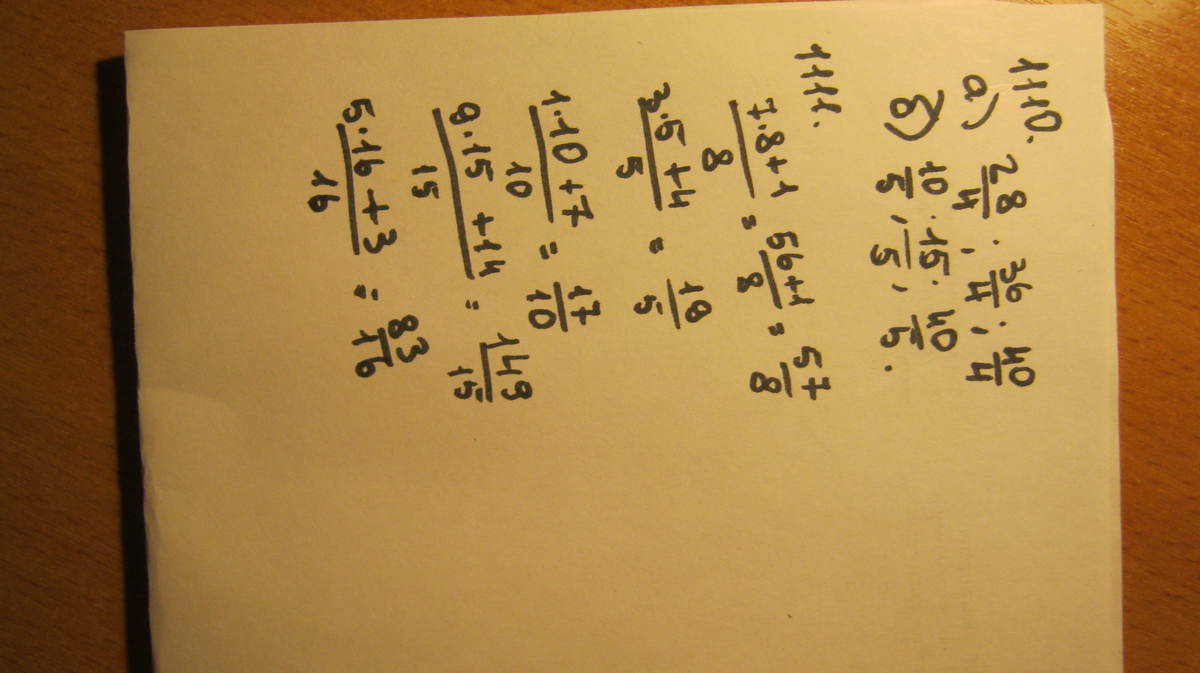 1110.
а) 28/4; 36/4; 40/4
б) 10/5; 15/5; 40/5.
1111.
(7·8+1)/8 = (56+1)/8 = 57/8
(3·5+4)/5 = 19/5
(1·10+7)/10 = 17/10
(9·15+14)/15 = 149/15
(5·16+3)/16 = 83/16